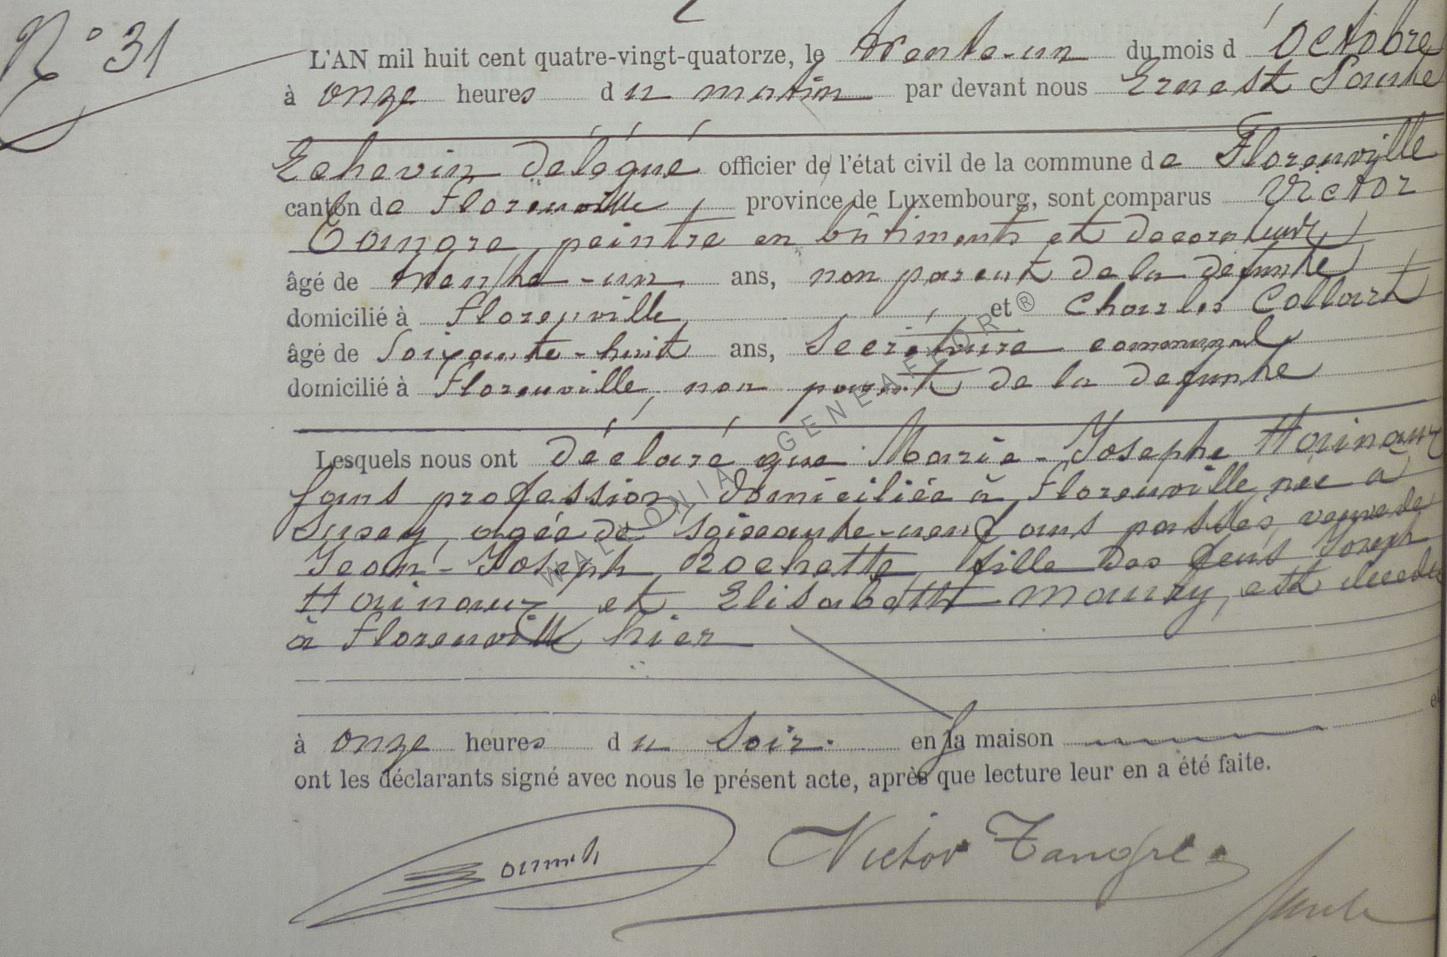 N° 31
L'AN mil huit cent quatre-vingt-quatorze, le trente-un du mois d'Octobre
à onze heures du matin par devant nous Ernest
Echevin délégué officier de l'état civil de la commune de Florenville
canton de Florenville, province de Luxembourg, sont comparus Victor
Tangre, peintre en bâtiments et decorateur,
âgé de trente-un ans, non parent de la defunte
domicilié à Florenville, et Charles Collart
âgé de Soixante-huit ans, Secrétaire communal
domicilié à Florenville, non parent de la defunte
Lesquels nous ont déclaré que Marie-Josephe Hainaux
sans profession, domiciliée à Florenville née à
agée de soixante-neuf ans passées, veuve de
Jean-Joseph Rochette, fille des feus Joseph
Hainaux et Elisabeth Maury, est decedée
à Florenville hier
à onze heures du soir. en sa maison et
ont les déclarants signé avec nous le présent acte, après que lecture leur en a été faite.
Victor Tangre
WALLONIA GENEAFLOR ®